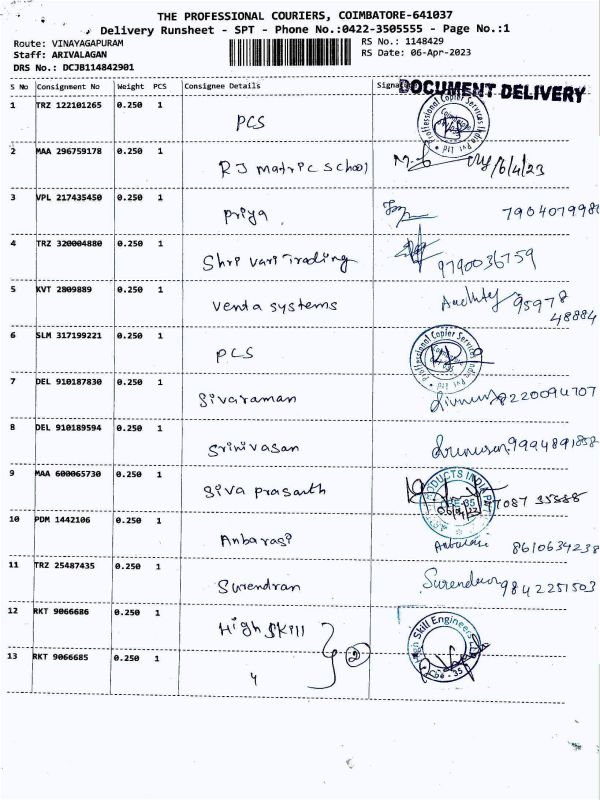 THE PROFESSIONAL COURIERS, COIMBATORE-641037
Delivery Runsheet - SPT - Phone No.:0422-3505555 - Page No.:1
Route: VINAYAGAPURAM RS No.: 1148429
Staff: ARIVALAGAN RS Date: 06-Apr-2023
DRS No.: DCJB114842901
DOCUMENT DELIVERY
S No Consignment No Weight PCS Consignee Details
1 TRZ 122101265 0.250 1 PCS Professional Copier Services India Pvt Ltd
2 MAA 296759178 0.250 1 RJ matric school 6/4/23
3 VPL 217435450 0.250 1 priya
4 TRZ 320004880 0.250 1 Shri Vari Trading 9790036759
5 KVT 2809889 0.250 1 Venta systems 95978
48884
6 SLM 317199221 0.250 1 PCS Professional Copier Services India Pvt Ltd
7 DEL 910187830 0.250 1 Sivaraman 8220094707
8 DEL 910189594 0.250 1 Srinivasan 9994891858
9 MAA 600065730 0.250 1 Siva prasanth
10 PDM 1442106 0.250 1 Anbarasi 8610634238
11 TRZ 25487435 0.250 1 Surendran Surendran 9842251503
12 RKT 9066686 0.250 1 High Skill High Skill Engineers
13 RKT 9066685 0.250 1 " 2 Cbe - 35